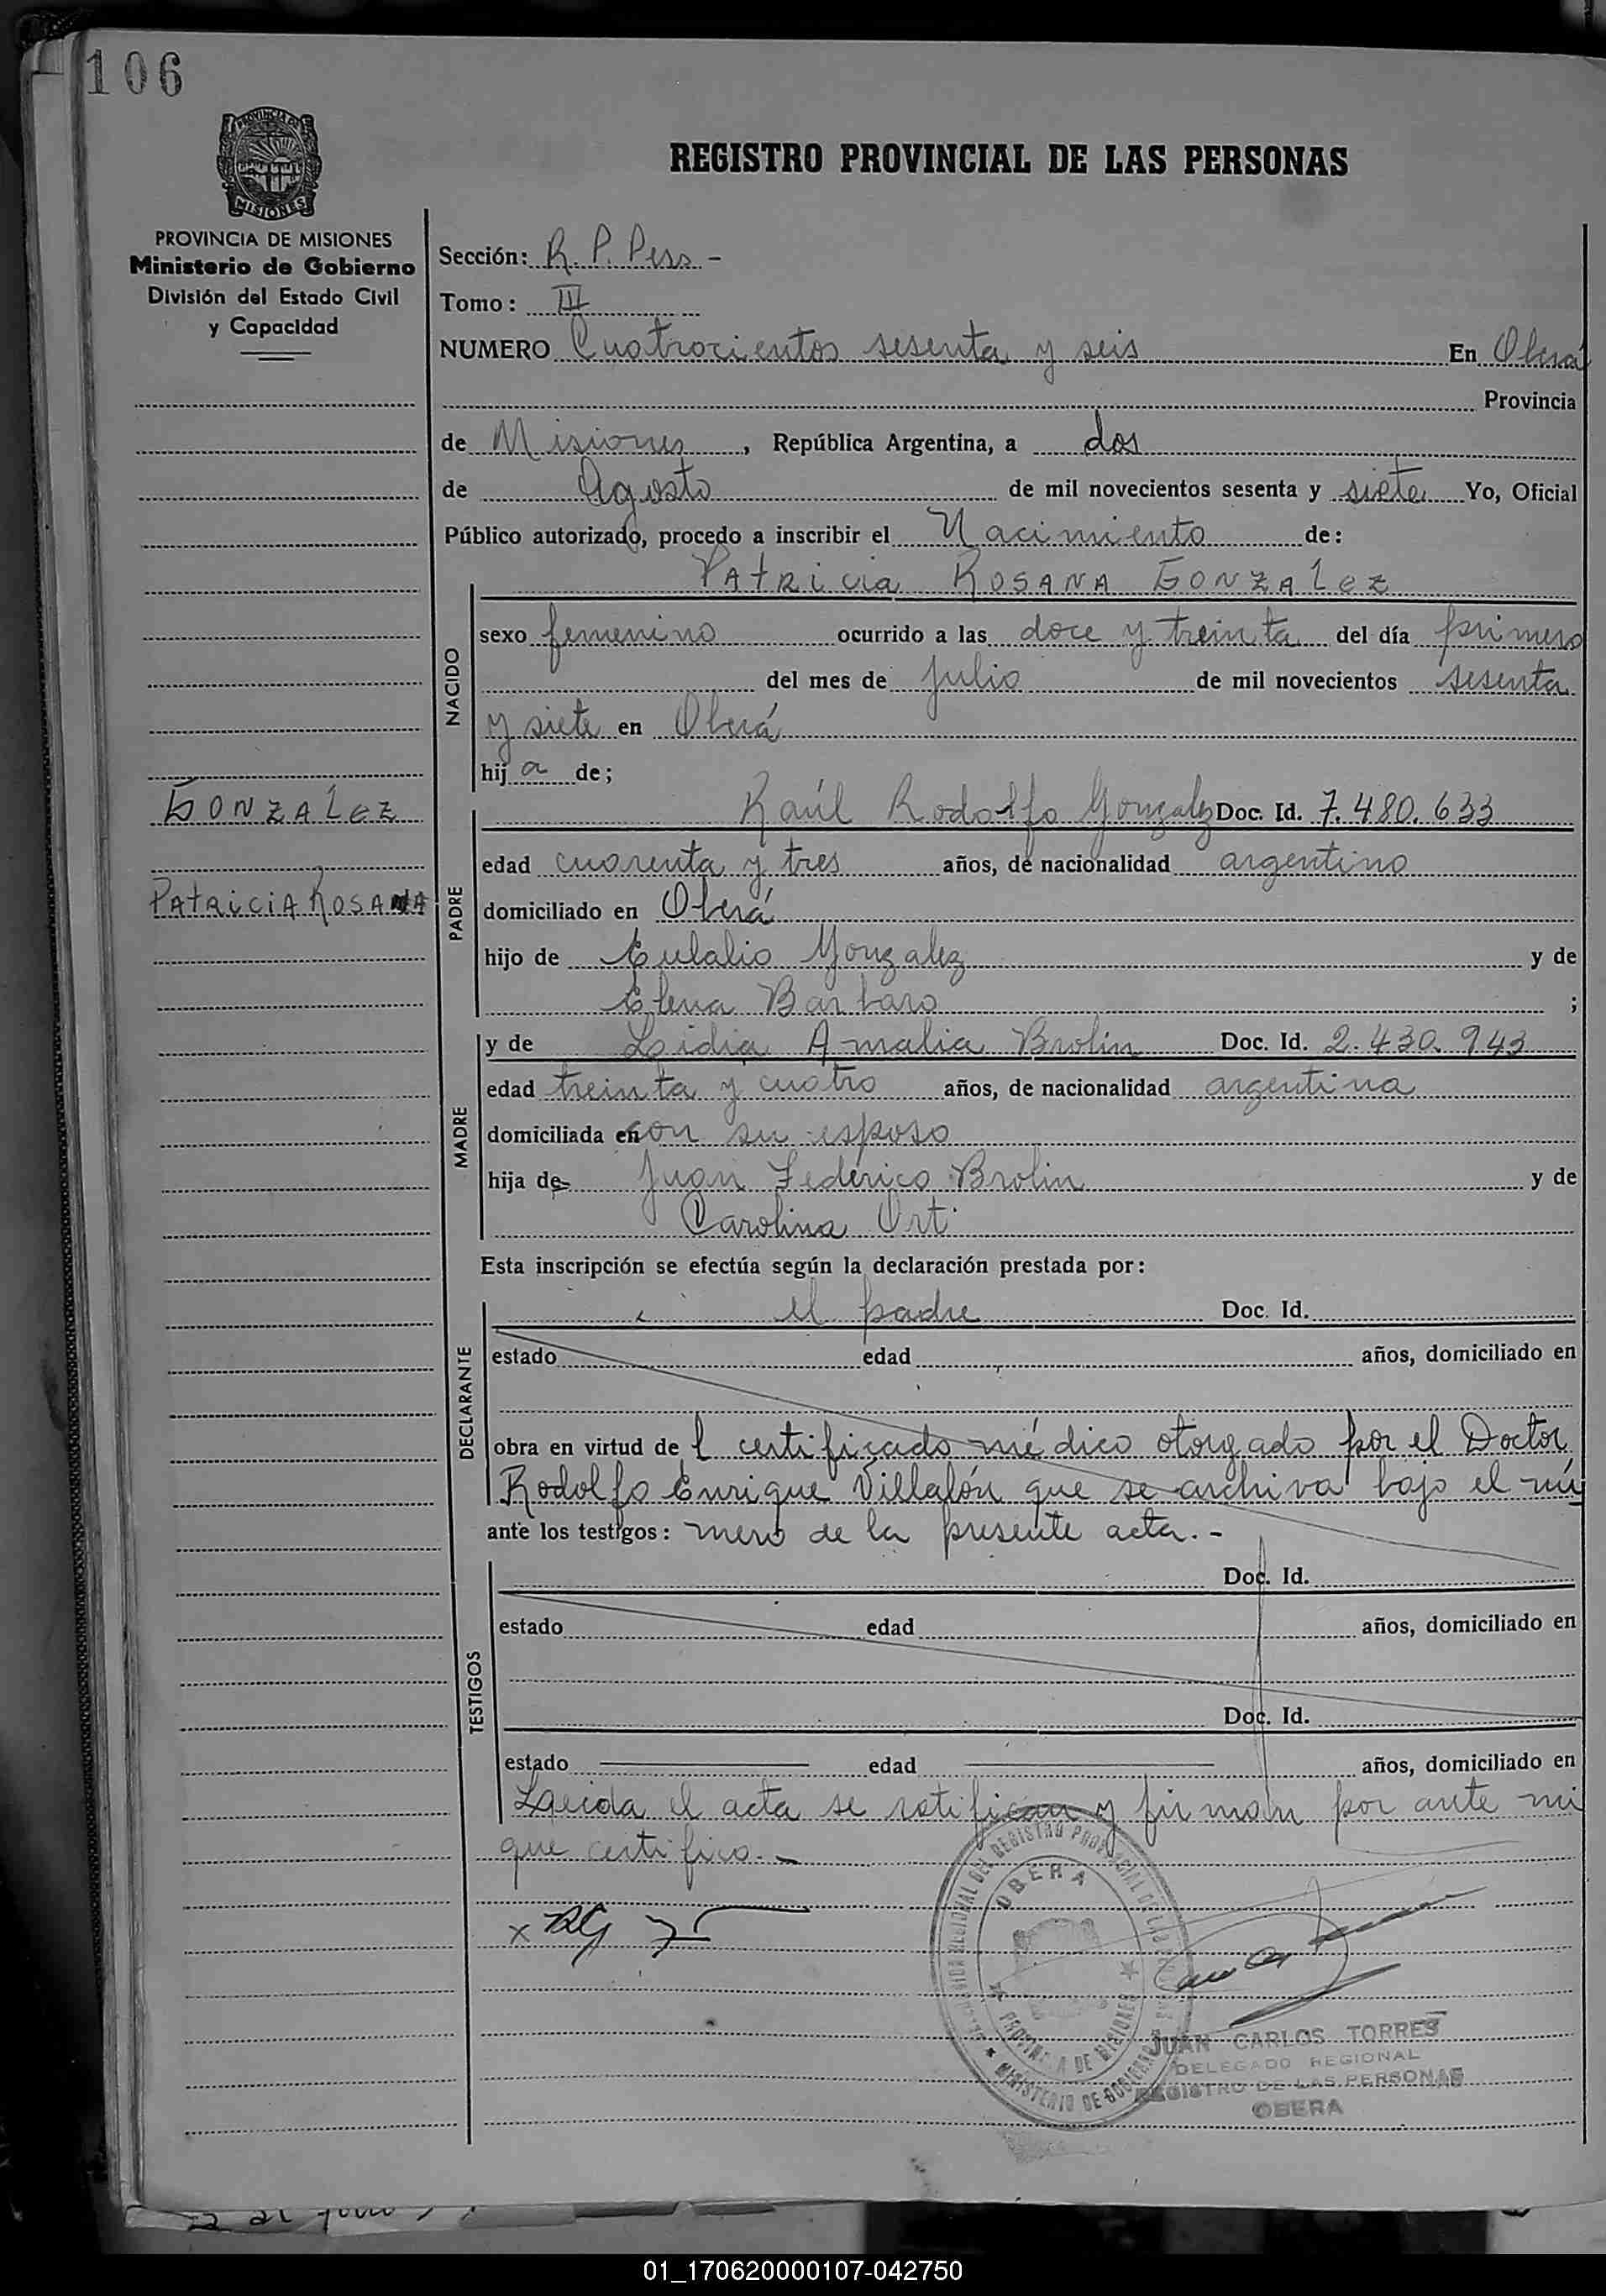 106
PROVINCIA DE
MISIONES
REGISTRO PROVINCIAL DE LAS PERSONAS
PROVINCIA DE MISIONES
Ministerio de Gobierno
División del Estado Civil
y Capacidad
Sección: R. P. Pers -
Tomo: III
NUMERO Cuatrocientos sesenta y seis En Oberá
Provincia
de Misiones, República Argentina, a dos
de Agosto de mil novecientos sesenta y siete Yo, Oficial
Público autorizado, procedo a inscribir el Nacimiento de:
PATRICIA ROSANA GONZALEZ
NACIDO
sexo femenino ocurrido a las doce y treinta del día primero
del mes de julio de mil novecientos sesenta
y siete en Oberá
hij a de;
GONZALEZ
PATRICIA ROSANA
PADRE
Raúl Rodolfo Gonzalez Doc. Id. 7.480.633
edad cuarenta y tres años, de nacionalidad argentino
domiciliado en Oberá
hijo de Eulalio Gonzalez y de
Elena Barbaro ;
MADRE
y de Lidia Amalia Brolin Doc. Id. 2.430.943
edad treinta y cuatro años, de nacionalidad argentina
domiciliada en con su esposo
hija de Juan Federico Brolin y de
Carolina Ort
Esta inscripción se efectúa según la declaración prestada por:
DECLARANTE
el padre Doc. Id.
estado edad años, domiciliado en
obra en virtud de l certificado médico otorgado por el Doctor
Rodolfo Enrique Villalón que se archiva bajo el nú
ante los testigos: mero de la presente acta. -
TESTIGOS
Doc. Id.
estado edad años, domiciliado en
Doc. Id.
estado edad años, domiciliado en
Leida el acta se ratifican y firman por ante mi
que certifico. -
OBERA
PROVINCIA DE MISIONES
MINISTERIO DE GOBIERNO
JUAN CARLOS TORRES
DELEGADO REGIONAL
REGISTRO DE LAS PERSONAS
OBERA
01_170620000107-042750